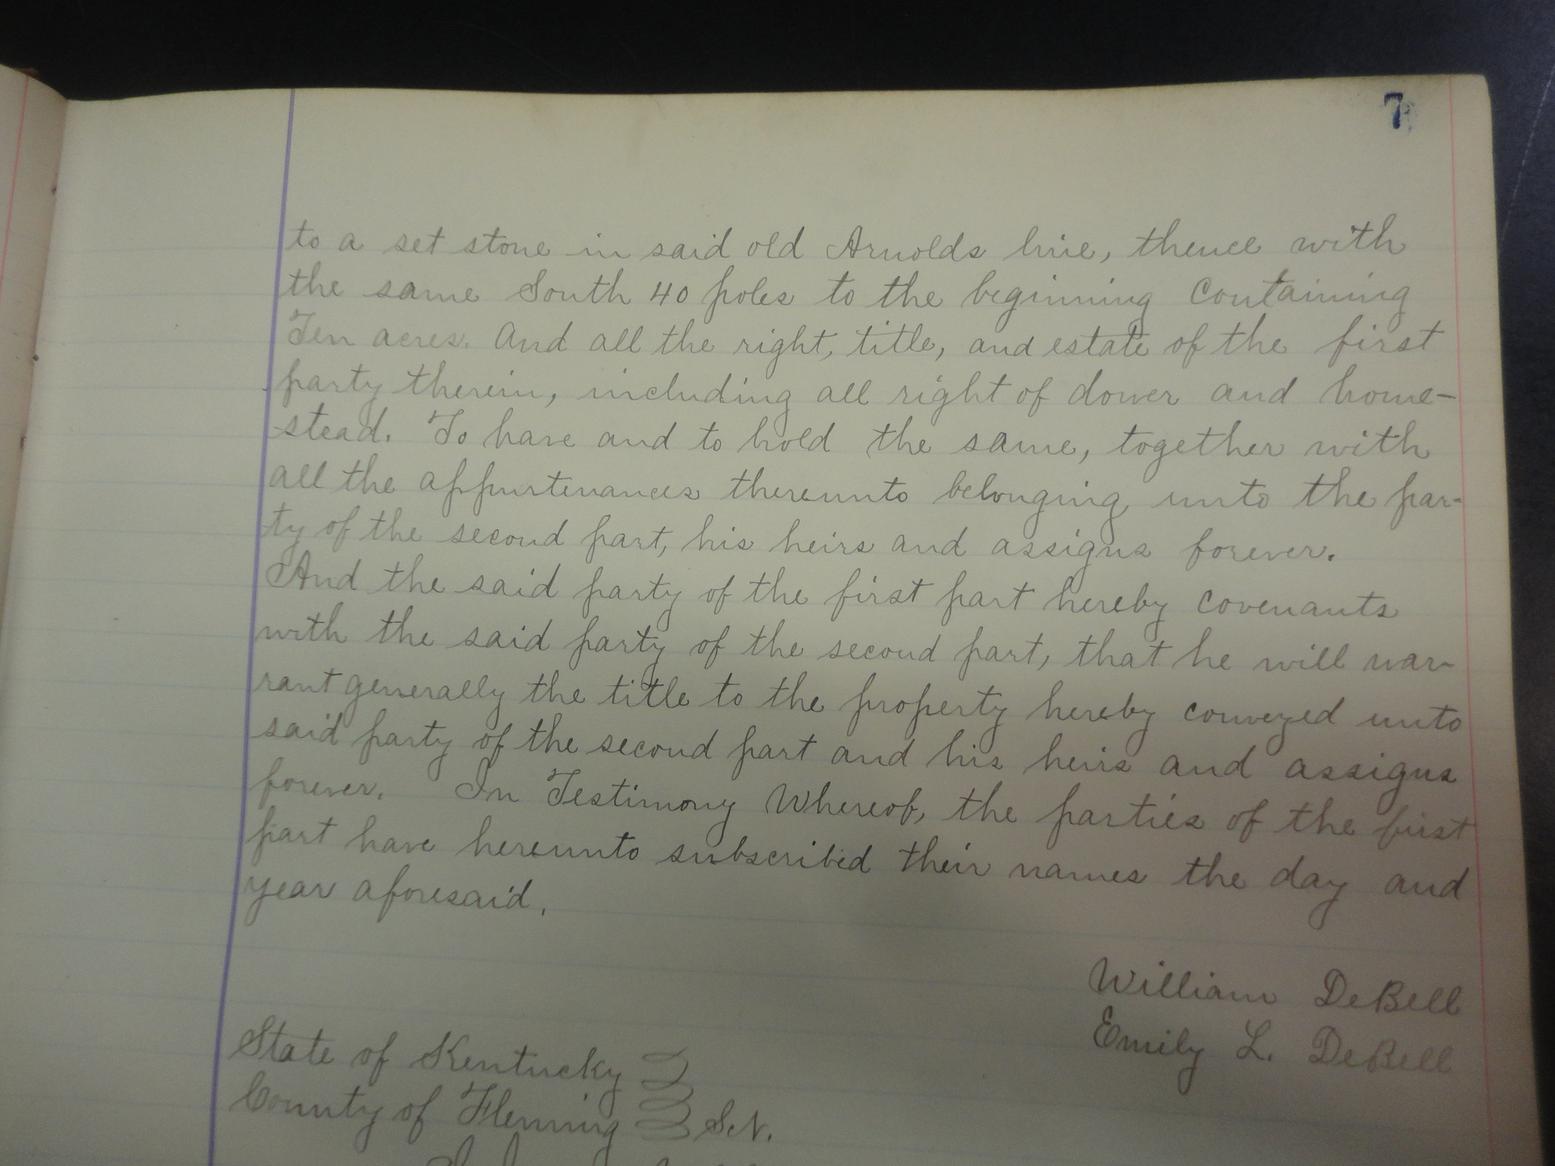 7
to a set stone in said old Arnolds line, thence with
the same South 40 poles to the beginning Containing
Ten acres. And all the right, title, and estate of the first
party therein, including all right of dower and home-
stead. To have and to hold the same, together with
all the appurtenances thereunto belonging unto the par-
ty of the second part, his heirs and assigns forever.
And the said party of the first part hereby covenants
with the said party of the second part, that he will war-
rant generally the title to the property hereby conveyed unto
said party of the second part and his heirs and assigns
forever. In Testimony Whereof, the parties of the first
part have hereunto subscribed their names the day and
year aforesaid.
William DeBell
Emily L. DeBell
State of Kentucky
County of Fleming Sct.